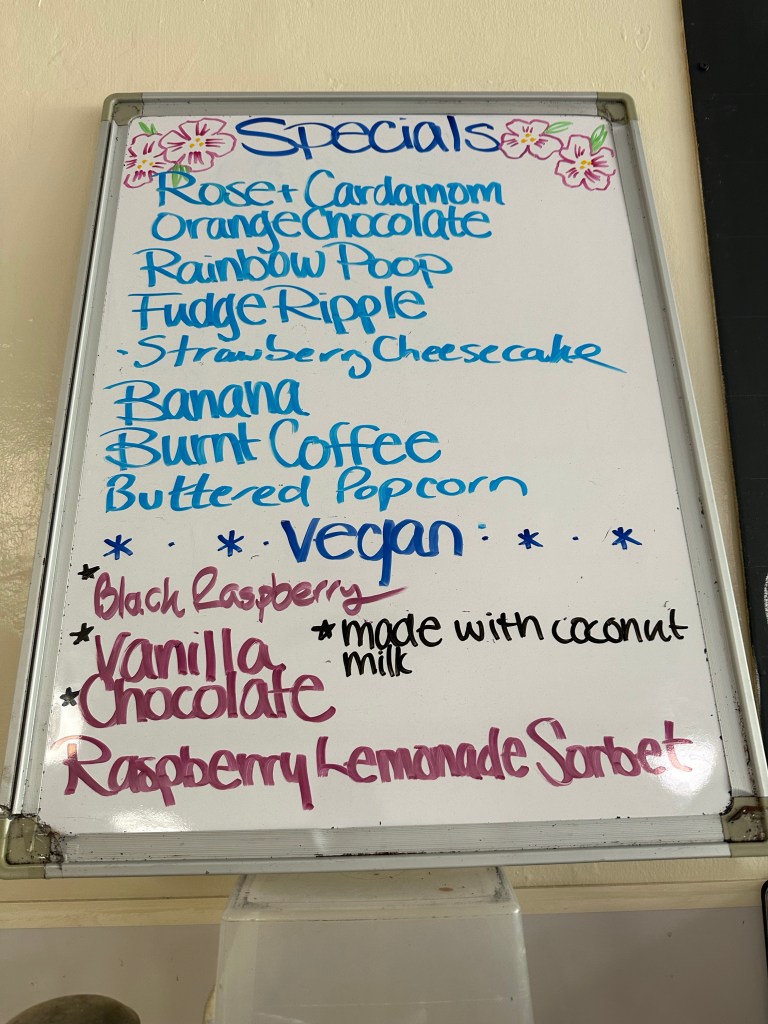 Specials
Rose + Cardamom
Orange Chocolate
Rainbow Poop
Fudge Ripple
- Strawberry Cheesecake
Banana
Burnt Coffee
Buttered Popcorn
* · * · Vegan · * · *
* Black Raspberry
* Vanilla
* made with coconut
milk
* Chocolate
Raspberry Lemonade Sorbet